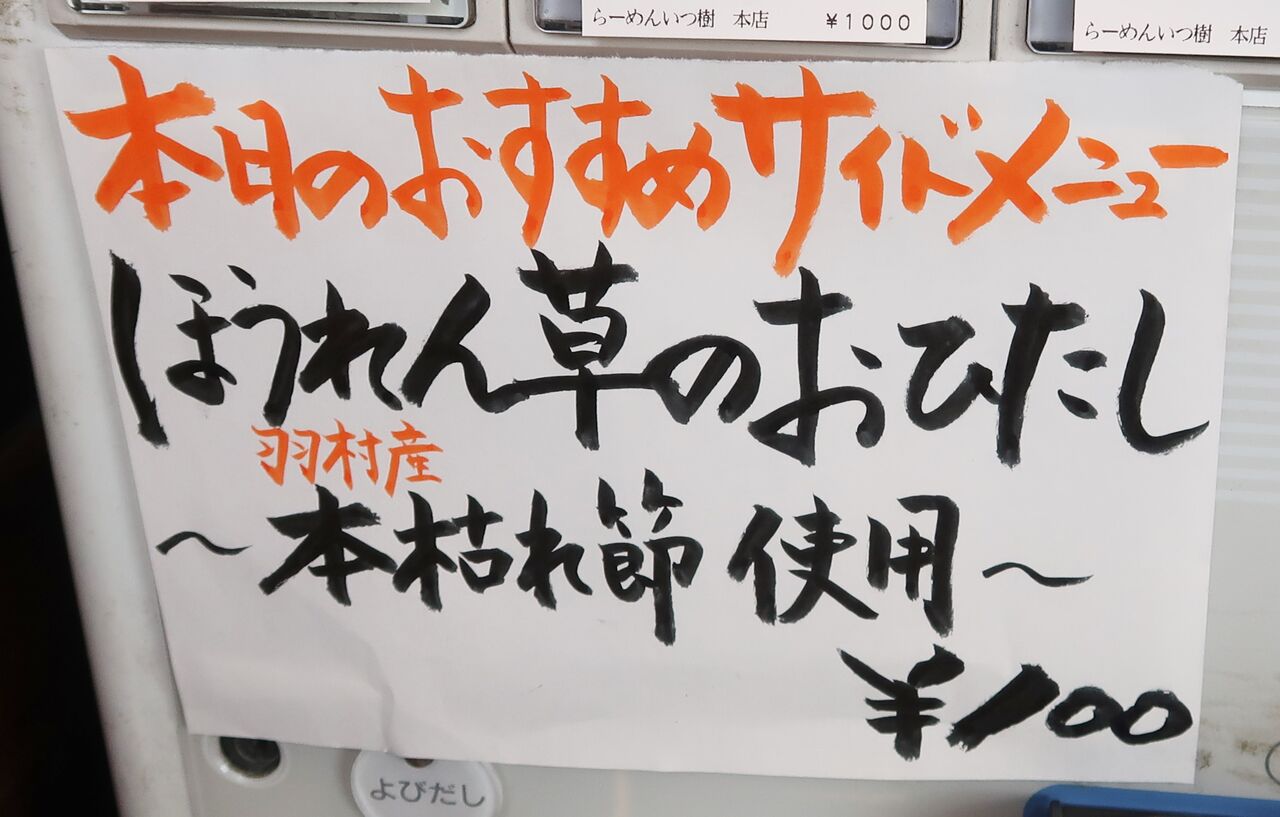 らーめんいつ樹 本店 ¥1000
らーめんいつ樹 本店
本日のおすすめサイドメニュー
ほうれん草のおひたし
羽村産
～本枯れ節使用～
¥100
よびだし